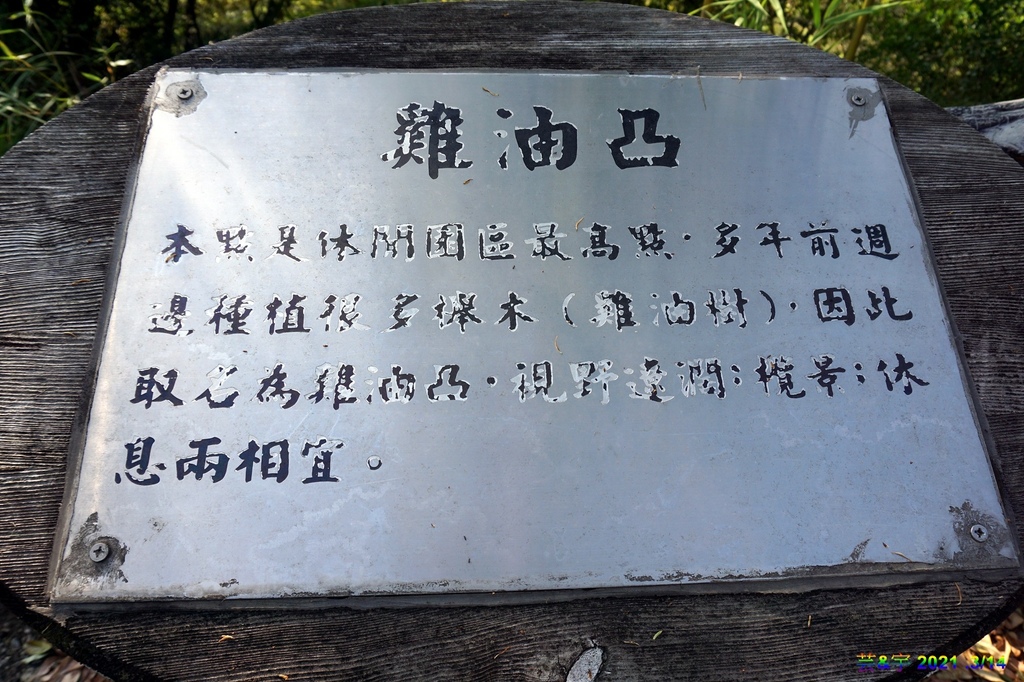 雞油凸
本點是休閒園區最高點.多年前週
邊種植很多櫸木(雞油樹),因此
取名為雞油凸.視野遼濶;欖景;休
息兩相宜。
芸&宇 2021 3/14